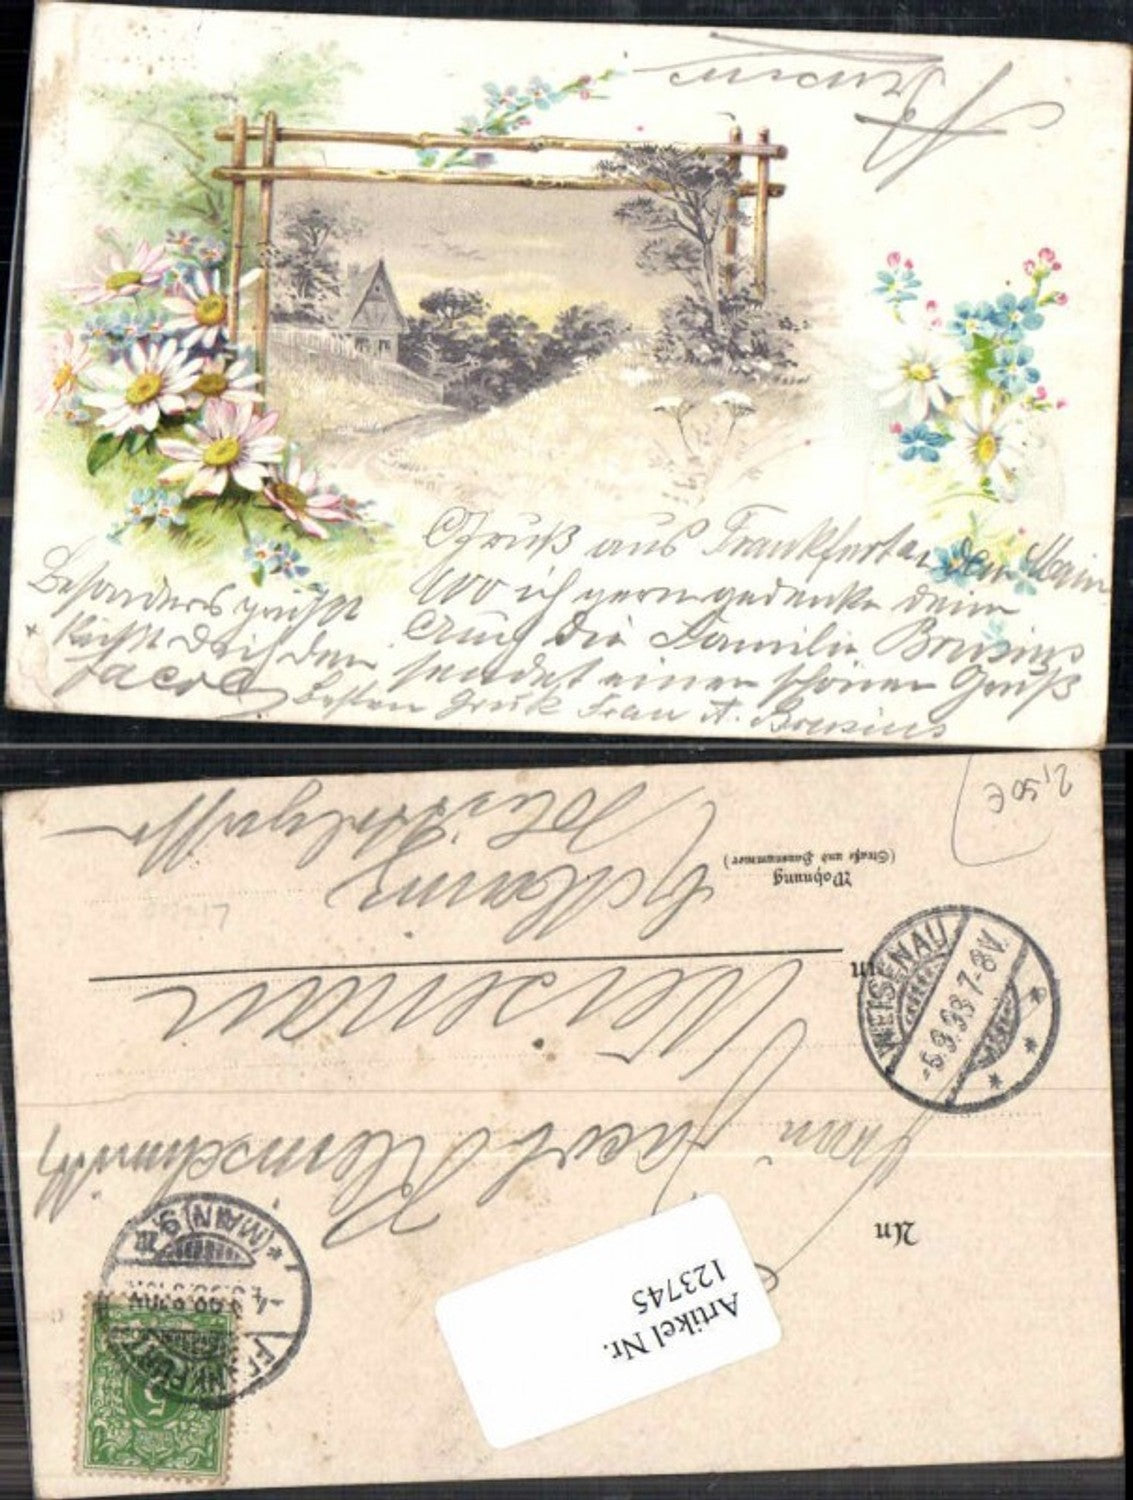 Gruß aus Frankfurt a. den Main
Wo ich gern gedenke dein
Auch die Familie Brusius
sendet einen schönen Gruß
Besten Gruß Frau A. Brusius
Besonders grüßt
küßt Dich dein
Jacob
2,50€
Wohnung
(Straße und Hausnummer)
in
Weisenau
Jacob Kleinschmidt
An
WEISENAU
6.9.98 7-8V.
FRANKFURT
(MAIN) 9.
5
Artikel Nr.
123745